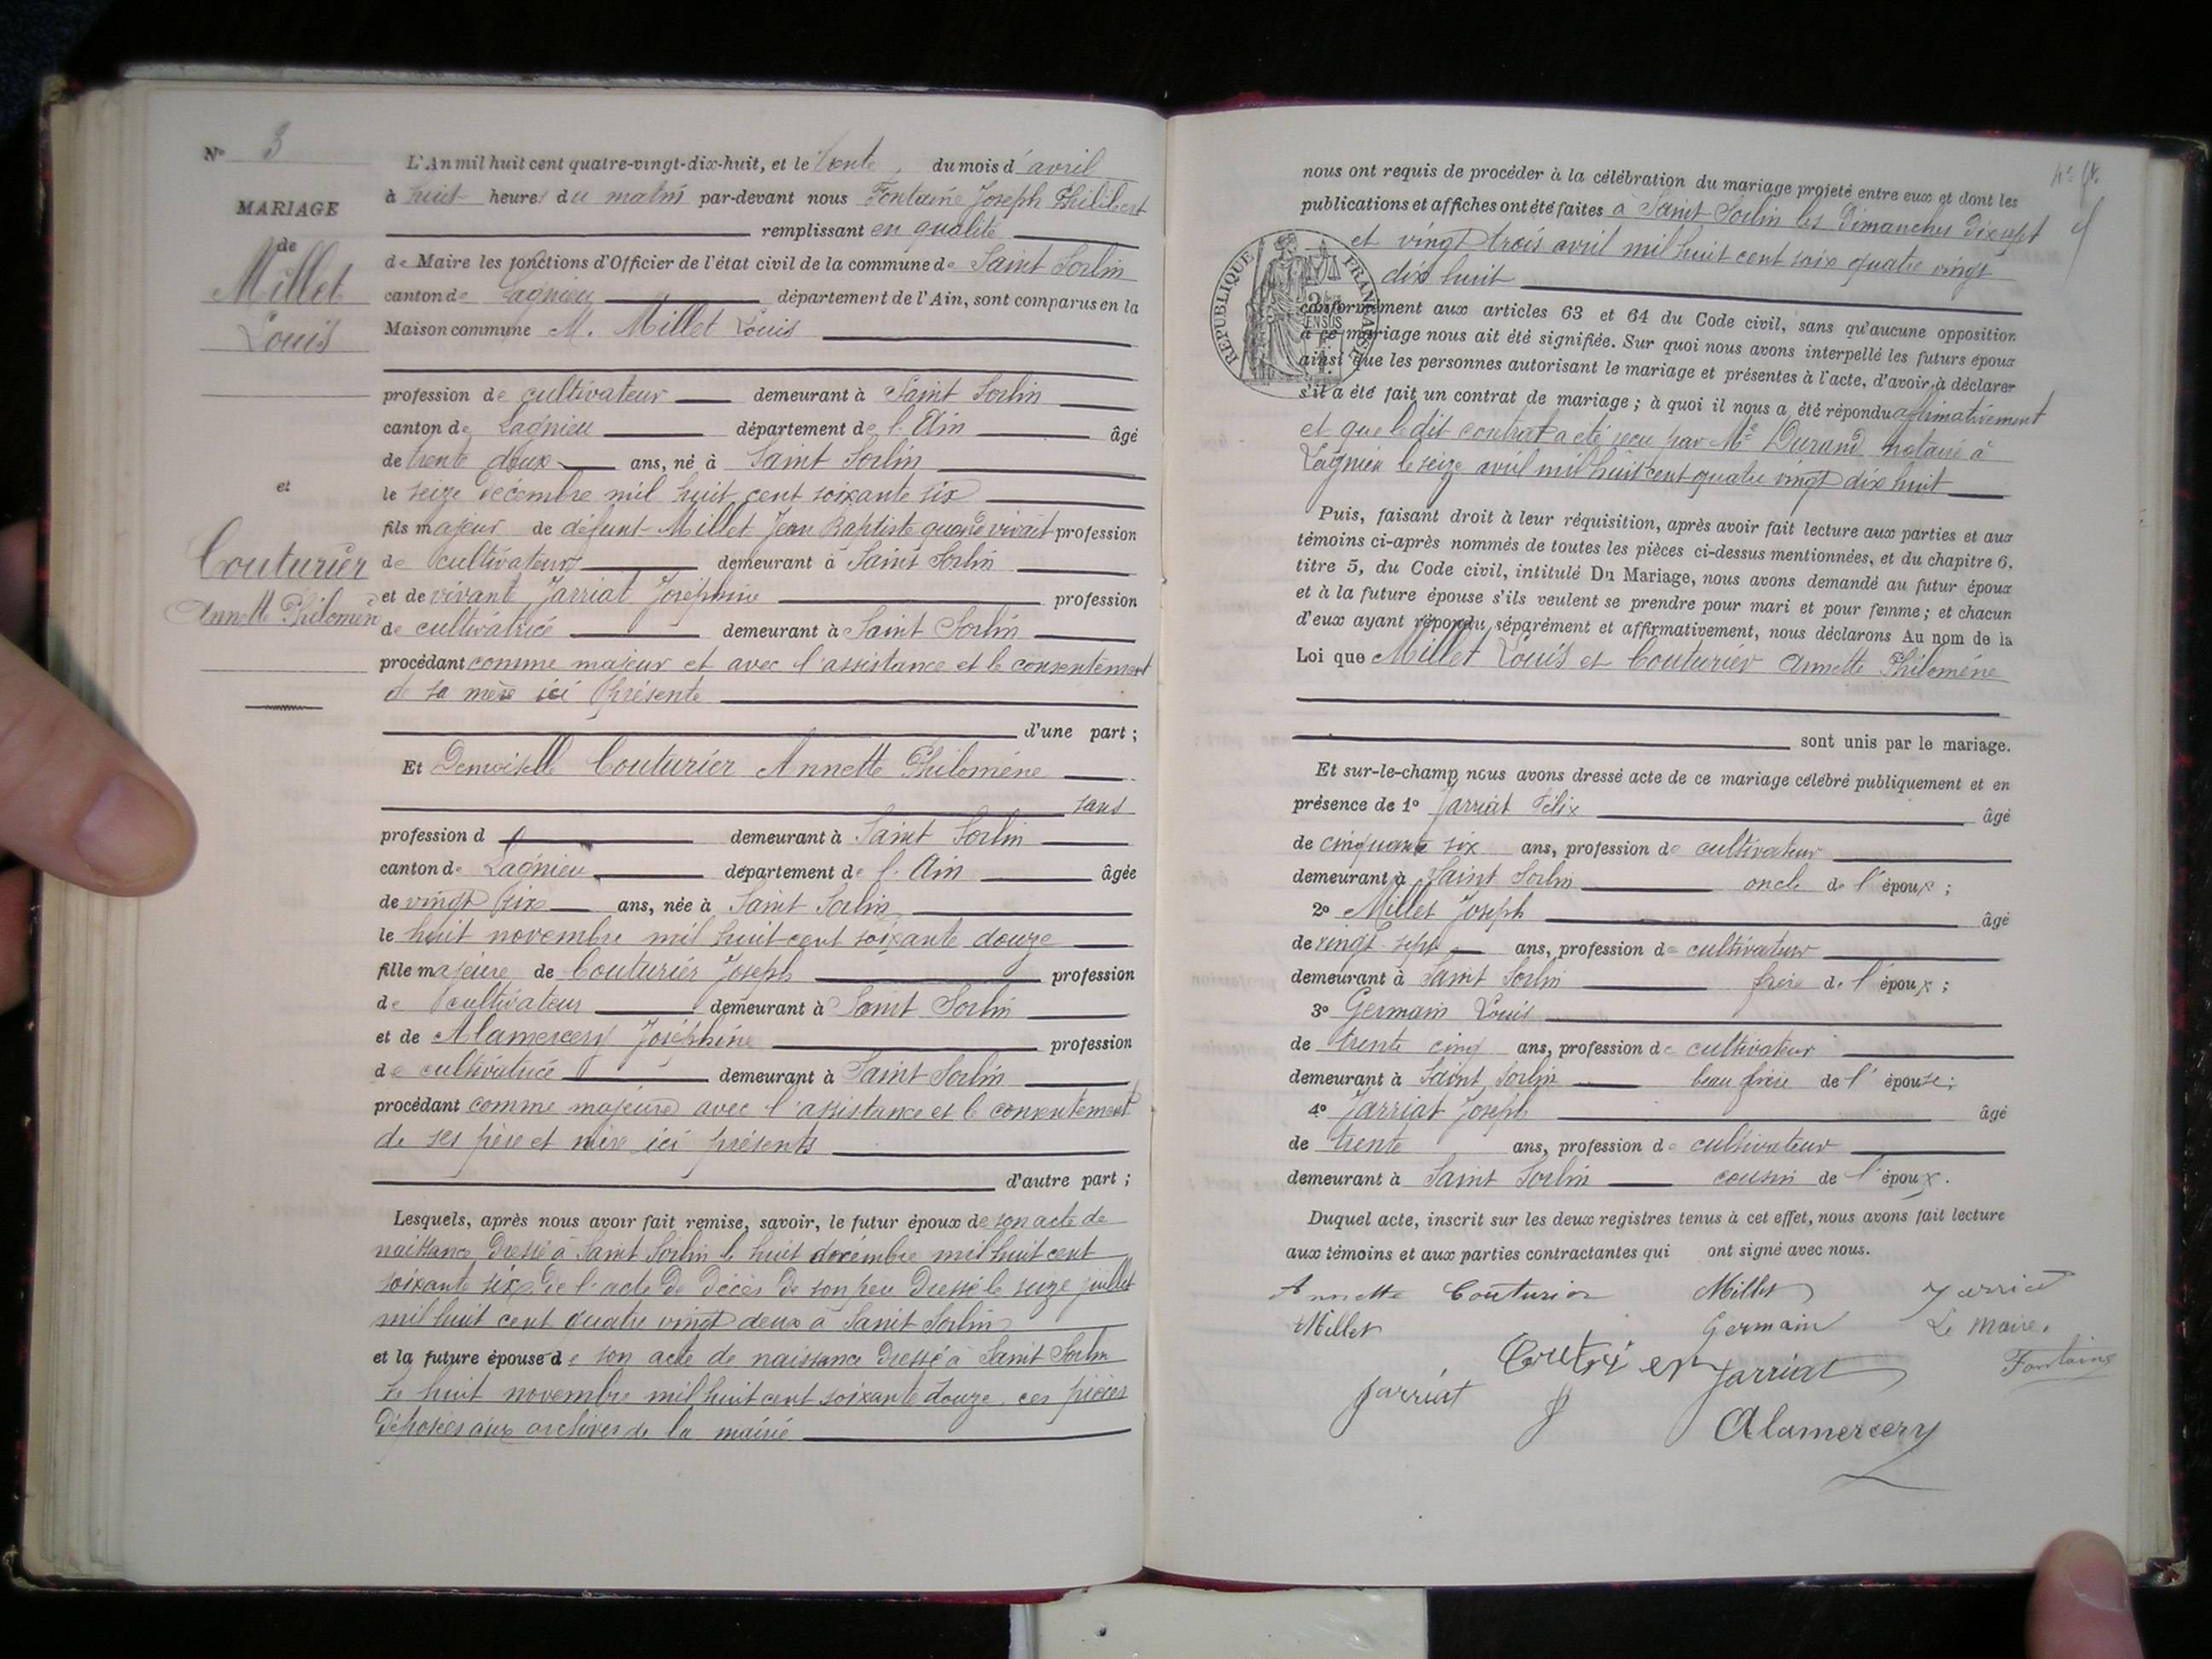 N° 3
MARIAGE
de
Millet
Louis
et
Couturier
Annette Philomène
L'An mil huit cent quatre-vingt-dix-huit, et le trente, du mois d'avril
à huit heures du matin par-devant nous Fontaine Joseph Philibert
remplissant en qualité
de Maire les fonctions d'Officier de l'état civil de la commune de Saint Sorlin
canton de Lagnieu département de l'Ain, sont comparus en la
Maison commune M. Millet Louis
profession de cultivateur demeurant à Saint Sorlin
canton de Lagnieu département de l'Ain âgé
de trente deux ans, né à Saint Sorlin
le seize décembre mil huit cent soixante six
fils majeur de défunt Millet Jean Baptiste quand vivait profession
de cultivateur demeurant à Saint Sorlin
et de vivante Jarriat Joséphine profession
de cultivatrice demeurant à Saint Sorlin
procédant comme majeur et avec l'assistance et le consentement
de sa mère ici présente
d'une part ;
Et Demoiselle Couturier Annette Philomène
sans
profession d demeurant à Saint Sorlin
canton de Lagnieu département de l'Ain âgée
de vingt six ans, née à Saint Sorlin
le huit novembre mil huit cent soixante douze
fille majeure de Couturier Joseph profession
de cultivateur demeurant à Saint Sorlin
et de Alamercery Joséphine profession
de cultivatrice demeurant à Saint Sorlin
procédant comme majeure avec l'assistance et le consentement
de ses père et mère ici présents
d'autre part ;
Lesquels, après nous avoir fait remise, savoir, le futur époux de son acte de
naissance dressé à Saint Sorlin le huit décembre mil huit cent
soixante six de l'acte de décès de son père dressé le seize juillet
mil huit cent quatre vingt deux à Saint Sorlin
et la future épouse de son acte de naissance dressé à Saint Sorlin
le huit novembre mil huit cent soixante douze. ces pièces
déposées aux archives de la mairie
nous ont requis de procéder à la célébration du mariage projeté entre eux et dont les
publications et affiches ont été faites à Saint Sorlin les Dimanches dix sept
et vingt trois avril mil huit cent soix quatre vingt
dix huit
RÉPUBLIQUE FRANÇAISE
conformément aux articles 63 et 64 du Code civil, sans qu'aucune opposition
à ce mariage nous ait été signifiée. Sur quoi nous avons interpellé les futurs époux
ainsi que les personnes autorisant le mariage et présentes à l'acte, d'avoir à déclarer
s'il a été fait un contrat de mariage ; à quoi il nous a été répondu affirmativement
et que le dit contrat a été reçu par Me Durand notaire à
Lagnieu le seize avril mil huit cent quatre vingt dix huit
Puis, faisant droit à leur réquisition, après avoir fait lecture aux parties et aux
témoins ci-après nommés de toutes les pièces ci-dessus mentionnées, et du chapitre 6,
titre 5, du Code civil, intitulé Du Mariage, nous avons demandé au futur époux
et à la future épouse s'ils veulent se prendre pour mari et pour femme ; et chacun
d'eux ayant répondu séparément et affirmativement, nous déclarons Au nom de la
Loi que Millet Louis et Couturier Annette Philomène
sont unis par le mariage.
Et sur-le-champ nous avons dressé acte de ce mariage célébré publiquement et en
présence de 1° Jarriat Félix âgé
de cinquante six ans, profession de cultivateur
demeurant à Saint Sorlin oncle de l'époux ;
2° Millet Joseph âgé
de vingt sept ans, profession de cultivateur
demeurant à Saint Sorlin frère de l'époux ;
3° Germain Louis
de trente cinq ans, profession de cultivateur
demeurant à Saint Sorlin beau frère de l'épouse ;
4° Jarriat Joseph âgé
de trente ans, profession de cultivateur
demeurant à Saint Sorlin cousin de l'époux.
Duquel acte, inscrit sur les deux registres tenus à cet effet, nous avons fait lecture
aux témoins et aux parties contractantes qui ont signé avec nous.
Annette Couturier Millet Jarriat
Millet Germain Le Maire,
Couturier Jarriat Fontaine
Jarriat
Alamercery